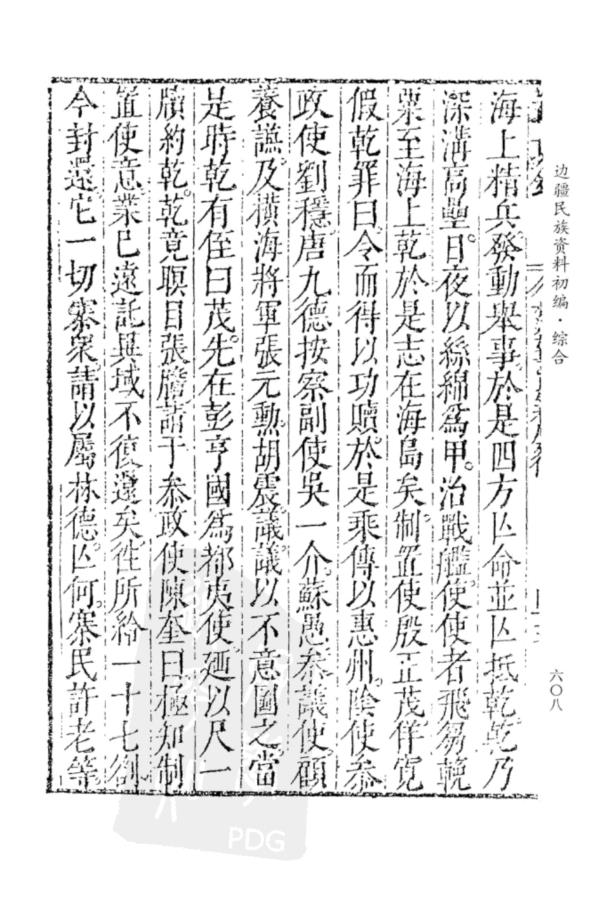 边疆民族资料初编·综合
六〇八
海上精兵發動舉事於是四方亾命並亾抵乾乾乃
深溝高壘日夜以絲綿爲甲治戰艦使使者飛芻輓
粟至海上乾於是志在海島矣制置使殷正茂佯寬
假乾罪曰令而得以功贖於是乘傳以惠州陰使叅
政使劉穩唐九德按察副使吳一介蘇愚叅議使顧
養謙及橫海將軍張元勳胡震議議以不意圖之當
是時乾有侄曰茂先在彭亨國爲都夷使廼以尺一
牘約乾乾竟瞑目張膽請于叅政使陳奎曰極知制
置使意業已遠託異域不復還矣徃所給一十七劄
今封還它一切寨衆請以屬林德亾何寨民許老等